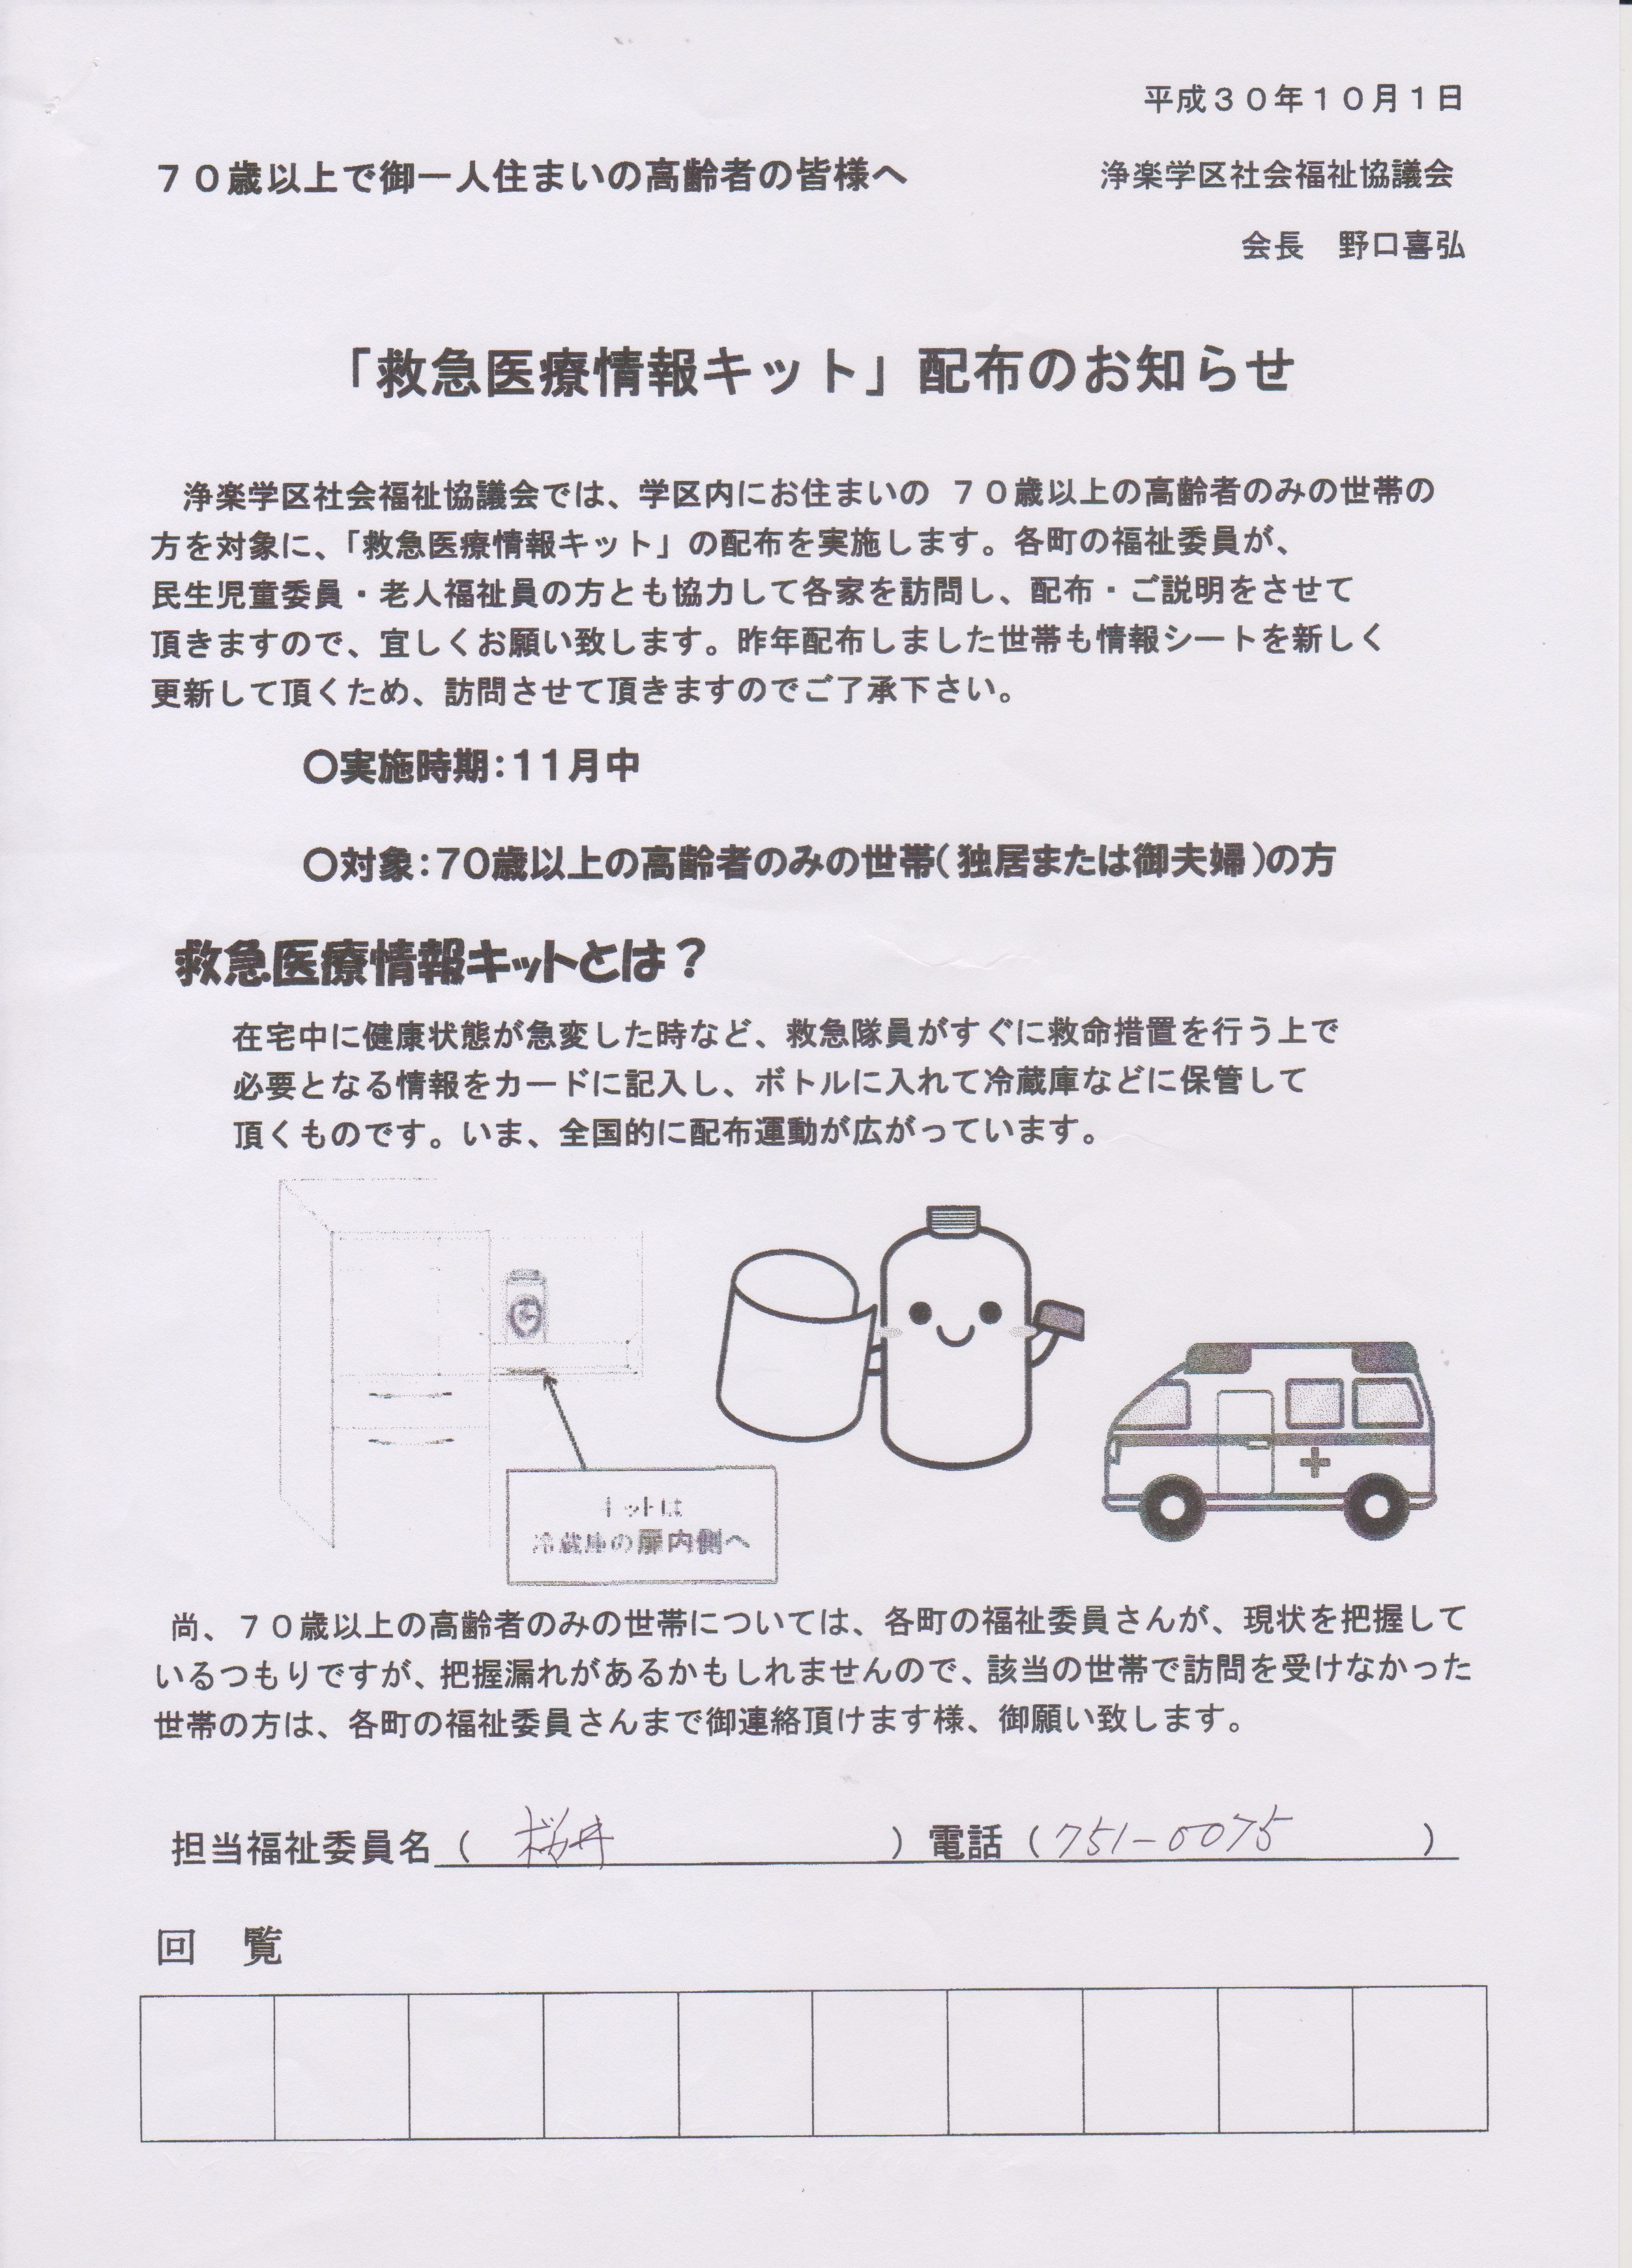 平成３０年１０月１日
７０歳以上で御一人住まいの高齢者の皆様へ
浄楽学区社会福祉協議会
会長　野口喜弘
「救急医療情報キット」配布のお知らせ
浄楽学区社会福祉協議会では、学区内にお住まいの ７０歳以上の高齢者のみの世帯の
方を対象に、「救急医療情報キット」の配布を実施します。各町の福祉委員が、
民生児童委員・老人福祉員の方とも協力して各家を訪問し、配布・ご説明をさせて
頂きますので、宜しくお願い致します。昨年配布しました世帯も情報シートを新しく
更新して頂くため、訪問させて頂きますのでご了承下さい。
〇実施時期：11月中
〇対象：70歳以上の高齢者のみの世帯（独居または御夫婦）の方
救急医療情報キットとは？
在宅中に健康状態が急変した時など、救急隊員がすぐに救命措置を行う上で
必要となる情報をカードに記入し、ボトルに入れて冷蔵庫などに保管して
頂くものです。いま、全国的に配布運動が広がっています。
キットは
冷蔵庫の扉内側へ
尚、７０歳以上の高齢者のみの世帯については、各町の福祉委員さんが、現状を把握して
いるつもりですが、把握漏れがあるかもしれませんので、該当の世帯で訪問を受けなかった
世帯の方は、各町の福祉委員さんまで御連絡頂けます様、御願い致します。
担当福祉委員名（ 桜井 ）電話（751-0075 ）
回　覧